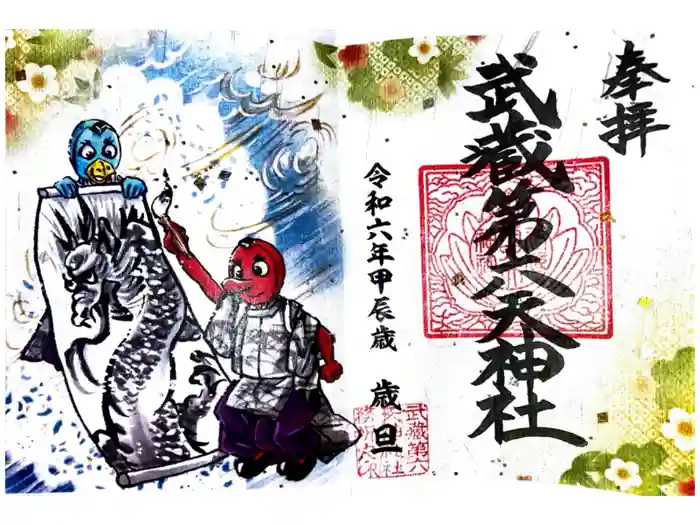 奉拝
武蔵第六天神社
令和六年甲辰歳
歳旦
武蔵第六